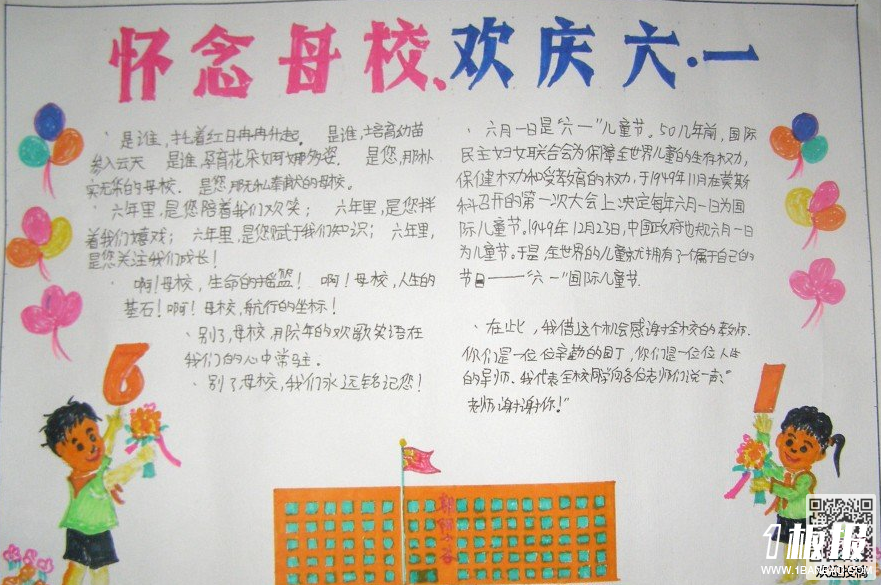 怀念母校、欢庆六·一
是谁,托着红日冉冉升起。 是谁,培育幼苗
参入云天 是谁,孕育花朵婀娜多姿. 是您,那朴
实无华的母校. 是您那无私奉献的母校。
六年里,是您陪着我们欢笑; 六年里,是您拌
着我们嬉戏; 六年里,是您赋于我们知识; 六年里,
是您关注我们成长!
啊!母校,生命的摇篮! 啊!母校,人生的
基石!啊!母校,航行的坐标!
别了,母校,用陪年的欢歌笑语在
我们的心中常驻.
别了母校,我们永远铭记您!
六月一日是“六一”儿童节。50几年前,国际
民主妇女联合会为保障全世界儿童的生存权力,
保健权力和受教育的权力,于1949年11月在莫斯
科召开的第一次大会上决定每年六月一日为国
际儿童节。1949年12月23日,中国政府也规六月一日
为儿童节。于是,全世界的儿童就拥有了一个属于自己的
节日——“六一”国际儿童节.
在此,我借这个机会感谢全校的老师.
你们是一位位辛勤的园丁,你们是一位位人生
的导师.我代表全校同学向各位老师们说一声:“
老师,谢谢你!”
6
1
1板报
WWW.1BANBAO.COM